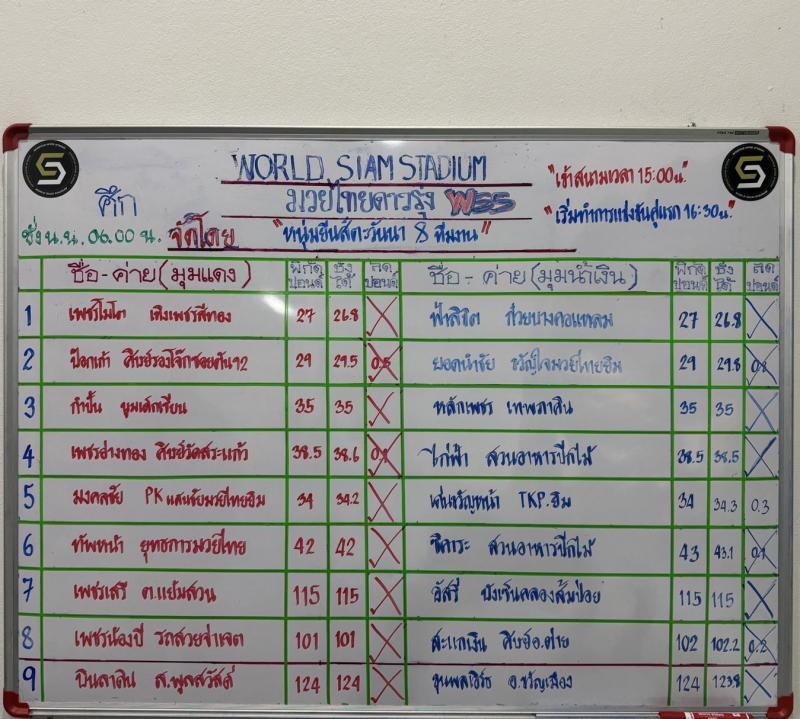 WORLD SIAM STADIUM
"เข้าสนามเวลา 15:00น."
ศึก มวยไทยดาวรุ่ง WSS
"เริ่มทำการแข่งขันคู่แรก 16:30น."
ชั่ง น.น. 06.00 น. จัดโดย "หนุ่มยีนส์ตะวันนา 8 ทีมงาน"
ชื่อ-ค่าย(มุมแดง) พิกัดปอนด์ ชั่งได้ ลดปอนด์ ชื่อ-ค่าย(มุมน้ำเงิน) พิกัดปอนด์ ชั่งได้ ลดปอนด์
1 เพชรโมโต 27 26.8 27 26.8
2 ป๊อกเก้า ศิษย์รองโจ๊กซอยตัน12 29 29.5 0.5 ยอดนำชัย ขวัญใจมวยไทยยิม 29 29.8
3 กำปั้น 35 35 หลักเพชร เทพภาคิน 35 35
4 เพชรอ่างทอง ศิษย์วัดสระแก้ว 38.5 38.6 0.1 ไก่ฟ้า สวนอาหารปีกไม้ 38.5 38.5
5 มงคลชัย PK แสนชัยมวยไทยยิม 34 34.2 เด่นขวัญหน้า TKP.ยิม 34 34.3 0.3
6 ทัพหน้า ยุทธการมวยไทย 42 42 สวนอาหารปีกไม้ 43 43.1 0.1
7 เพชรเสรี ต.แย้มสวน 115 115 วัสรี บังเซ็นคลองส้มป่อย 115 115
8 เพชรน้องปี รถสวยจ่าเจต 101 101 สะแกเงิน ศิษย์อ.ต่าย 102 102.2 0.2
9 บินลาดิน ส.พูลสวัสดิ์ 124 124 อ.ขวัญเมือง 124 123.8